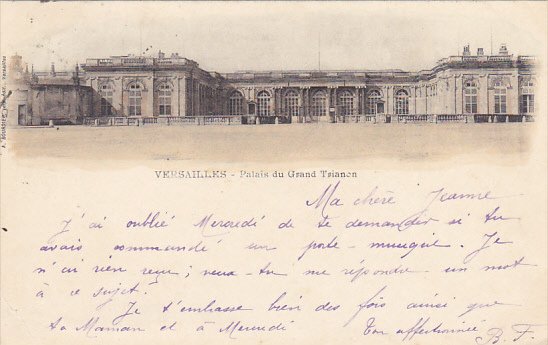 VERSAILLES - Palais du Grand Trianon
Ma chère Jeanne
J'ai oublié Mercredi de te demander si tu
avais commandé un porte-musique. Je
n'ai rien reçu; veux-tu me répondre un mot
à ce sujet?
Je t'embrasse bien des fois ainsi que
ta Maman et à Mercredi
Ton affectionnée B. F.